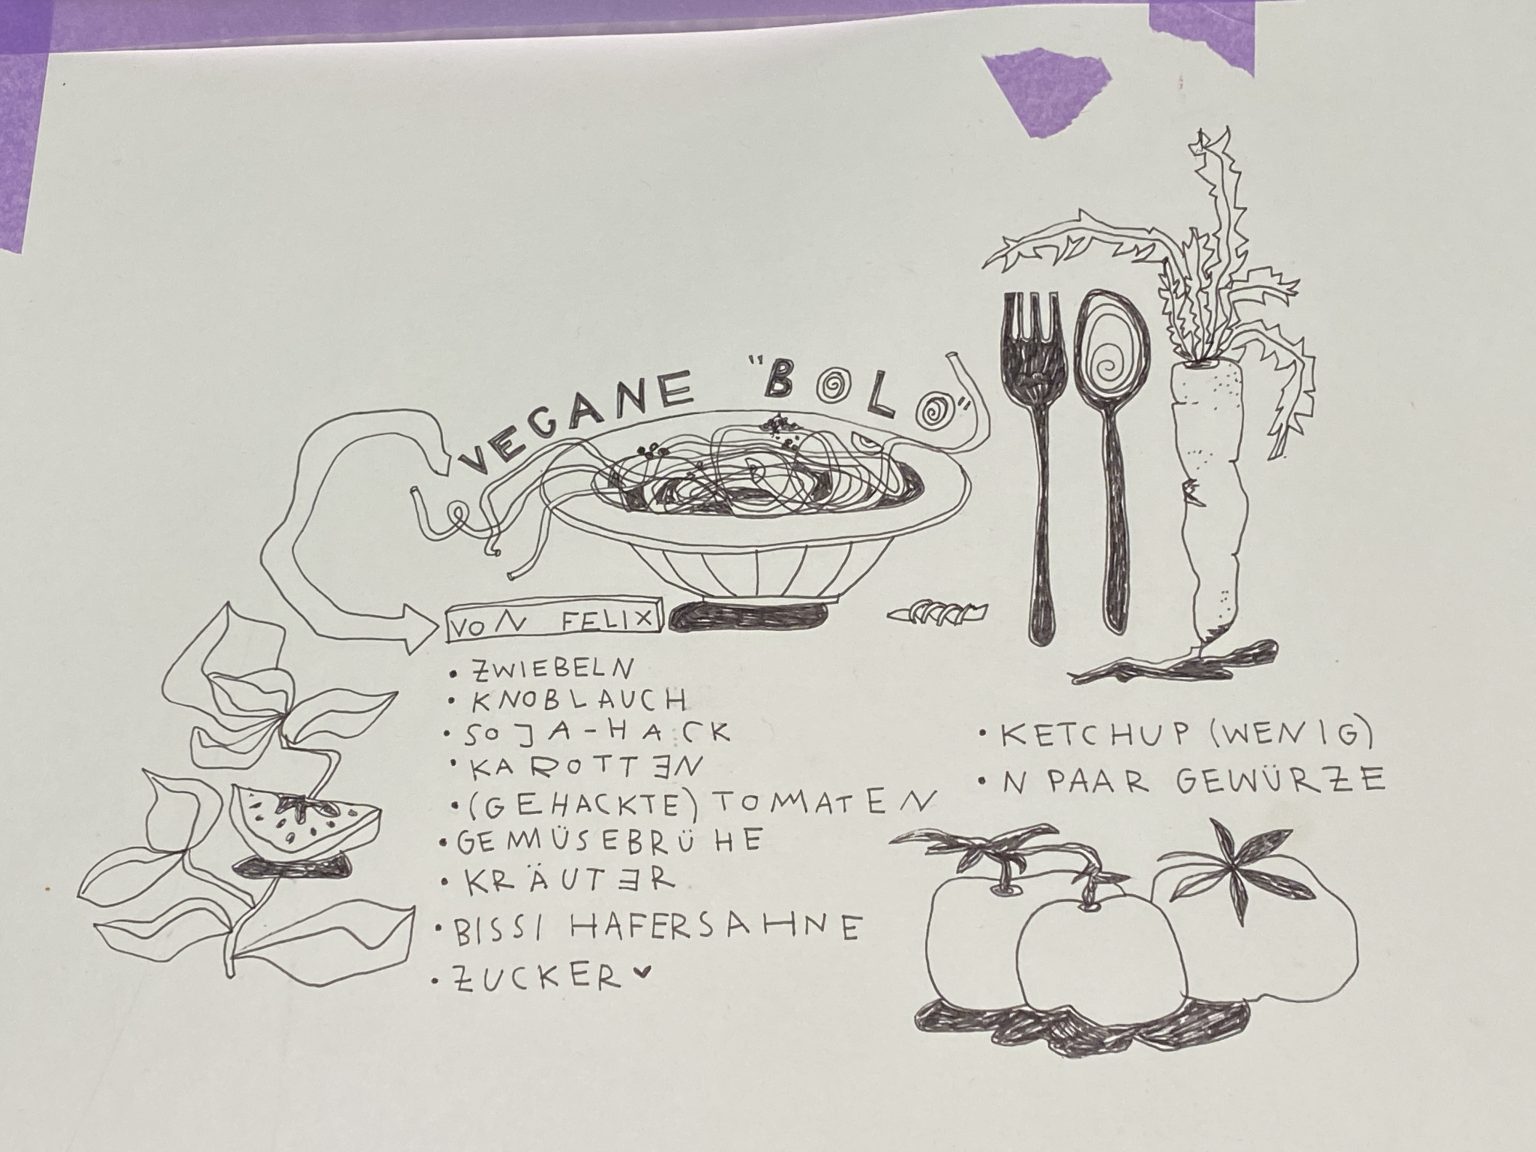 VEGANE "BOLO"
VON FELIX
• ZWIEBELN
• KNOBLAUCH
• SOJA-HACK
• KAROTTEN
• (GEHACKTE) TOMATEN
• GEMÜSEBRÜHE
• KRÄUTER
• BISSI HAFERSAHNE
• ZUCKER ♥
• KETCHUP (WENIG)
• N PAAR GEWÜRZE